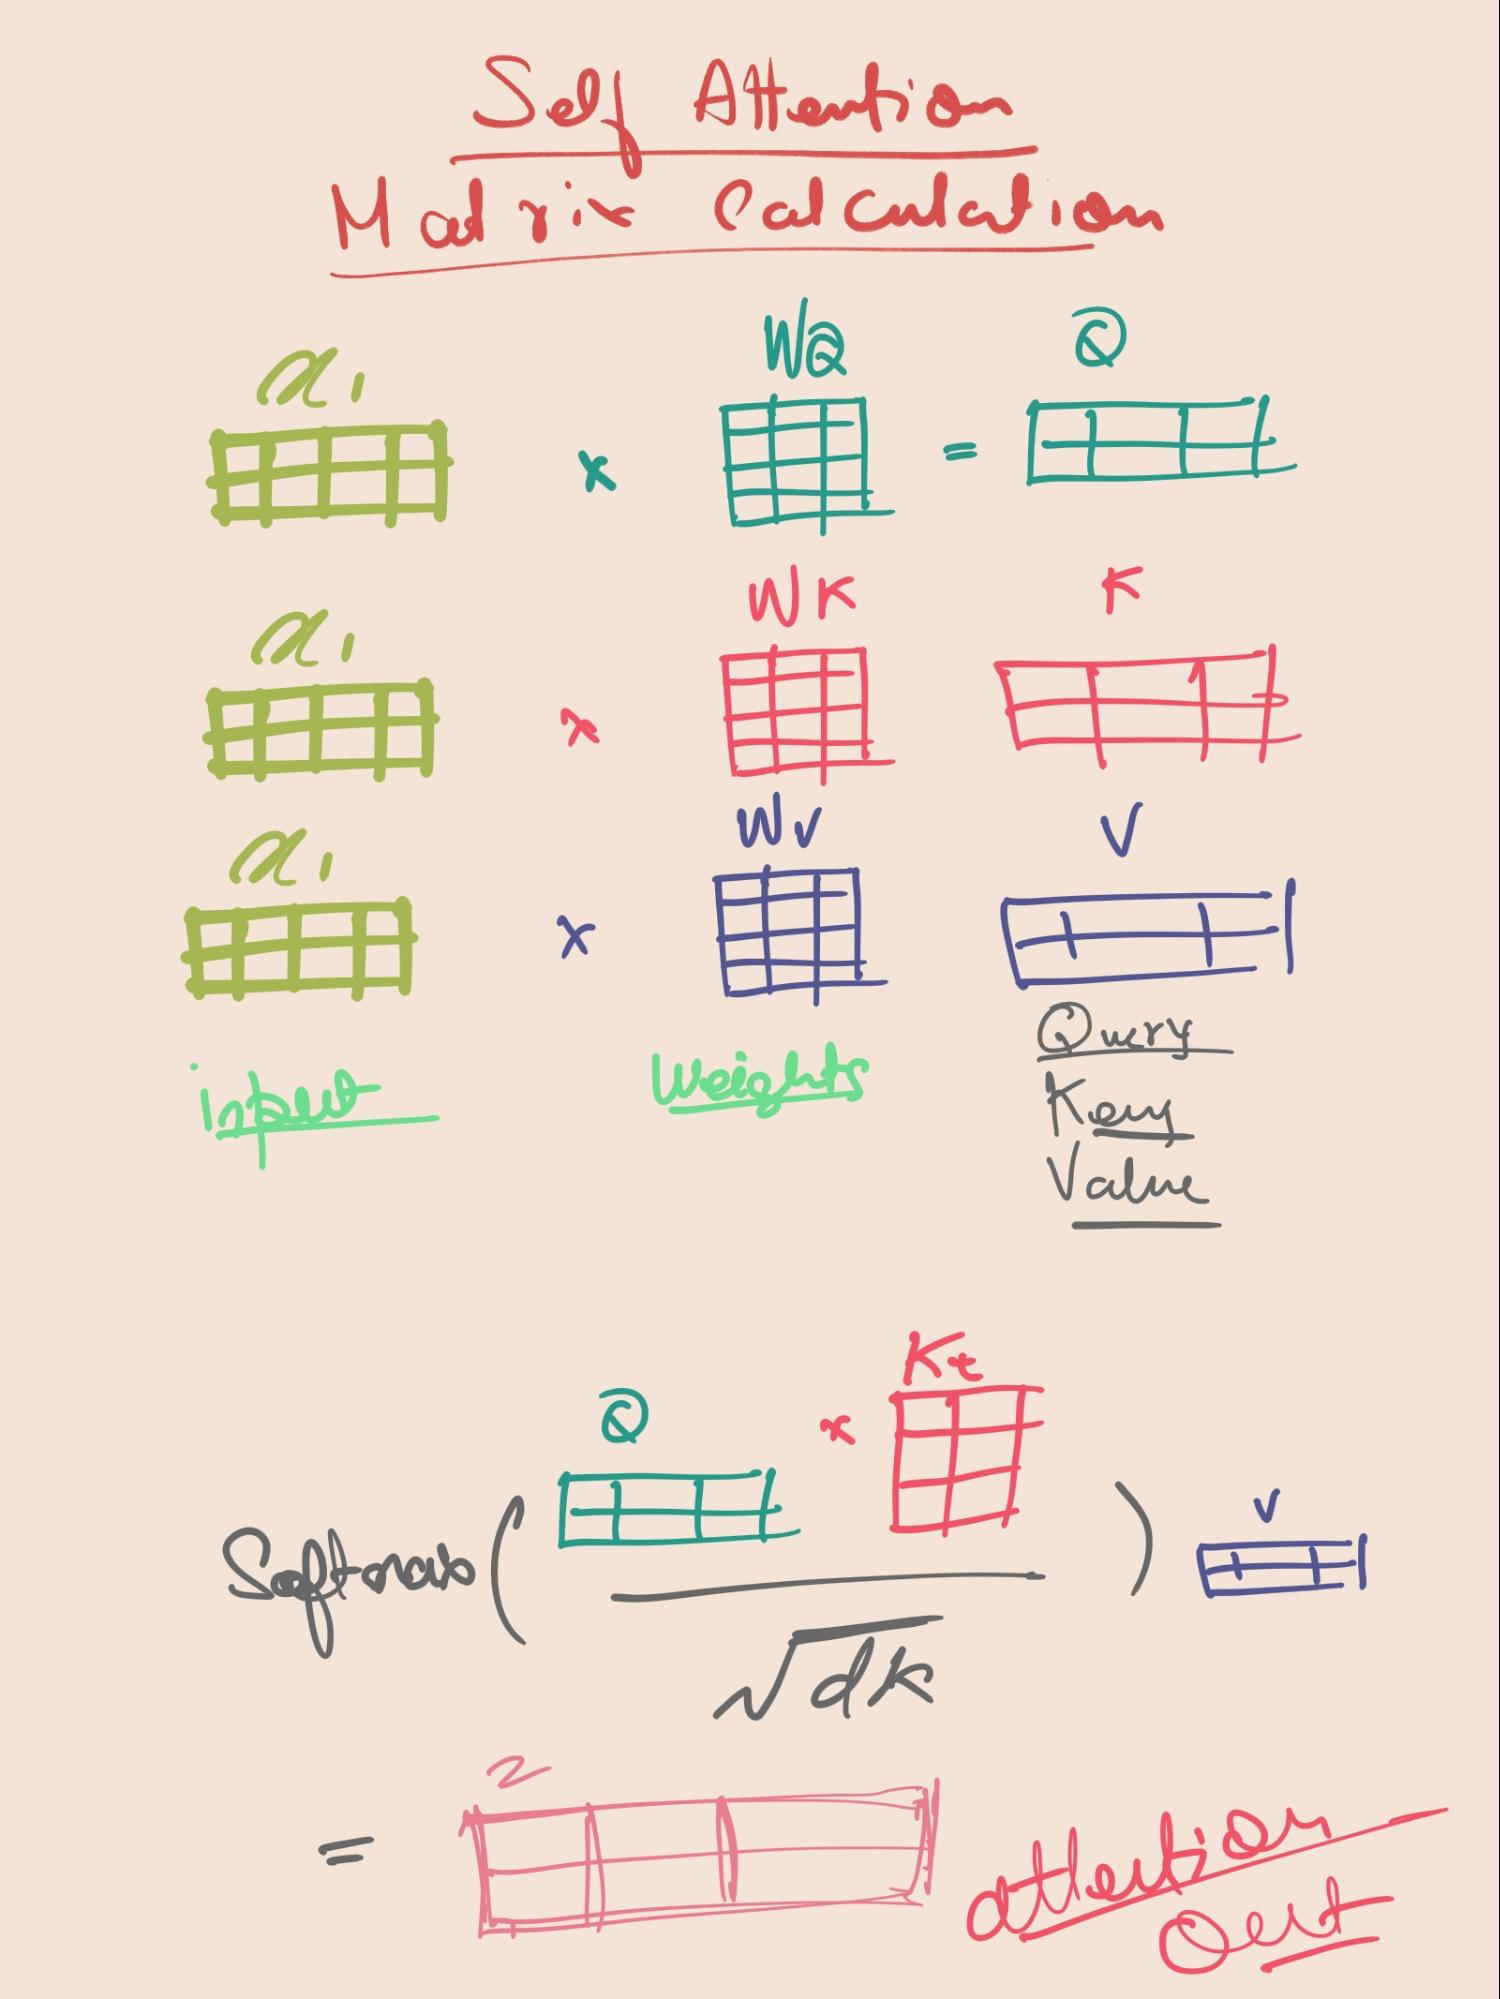 Self Attention
Matrix Calculation
x1 x WQ = Q
x1 x WK K
x1 x Wv V
input Weights Query
Key
Value
Q x Kt
Softmax ( ) v
√dk
= Z
attention
Out